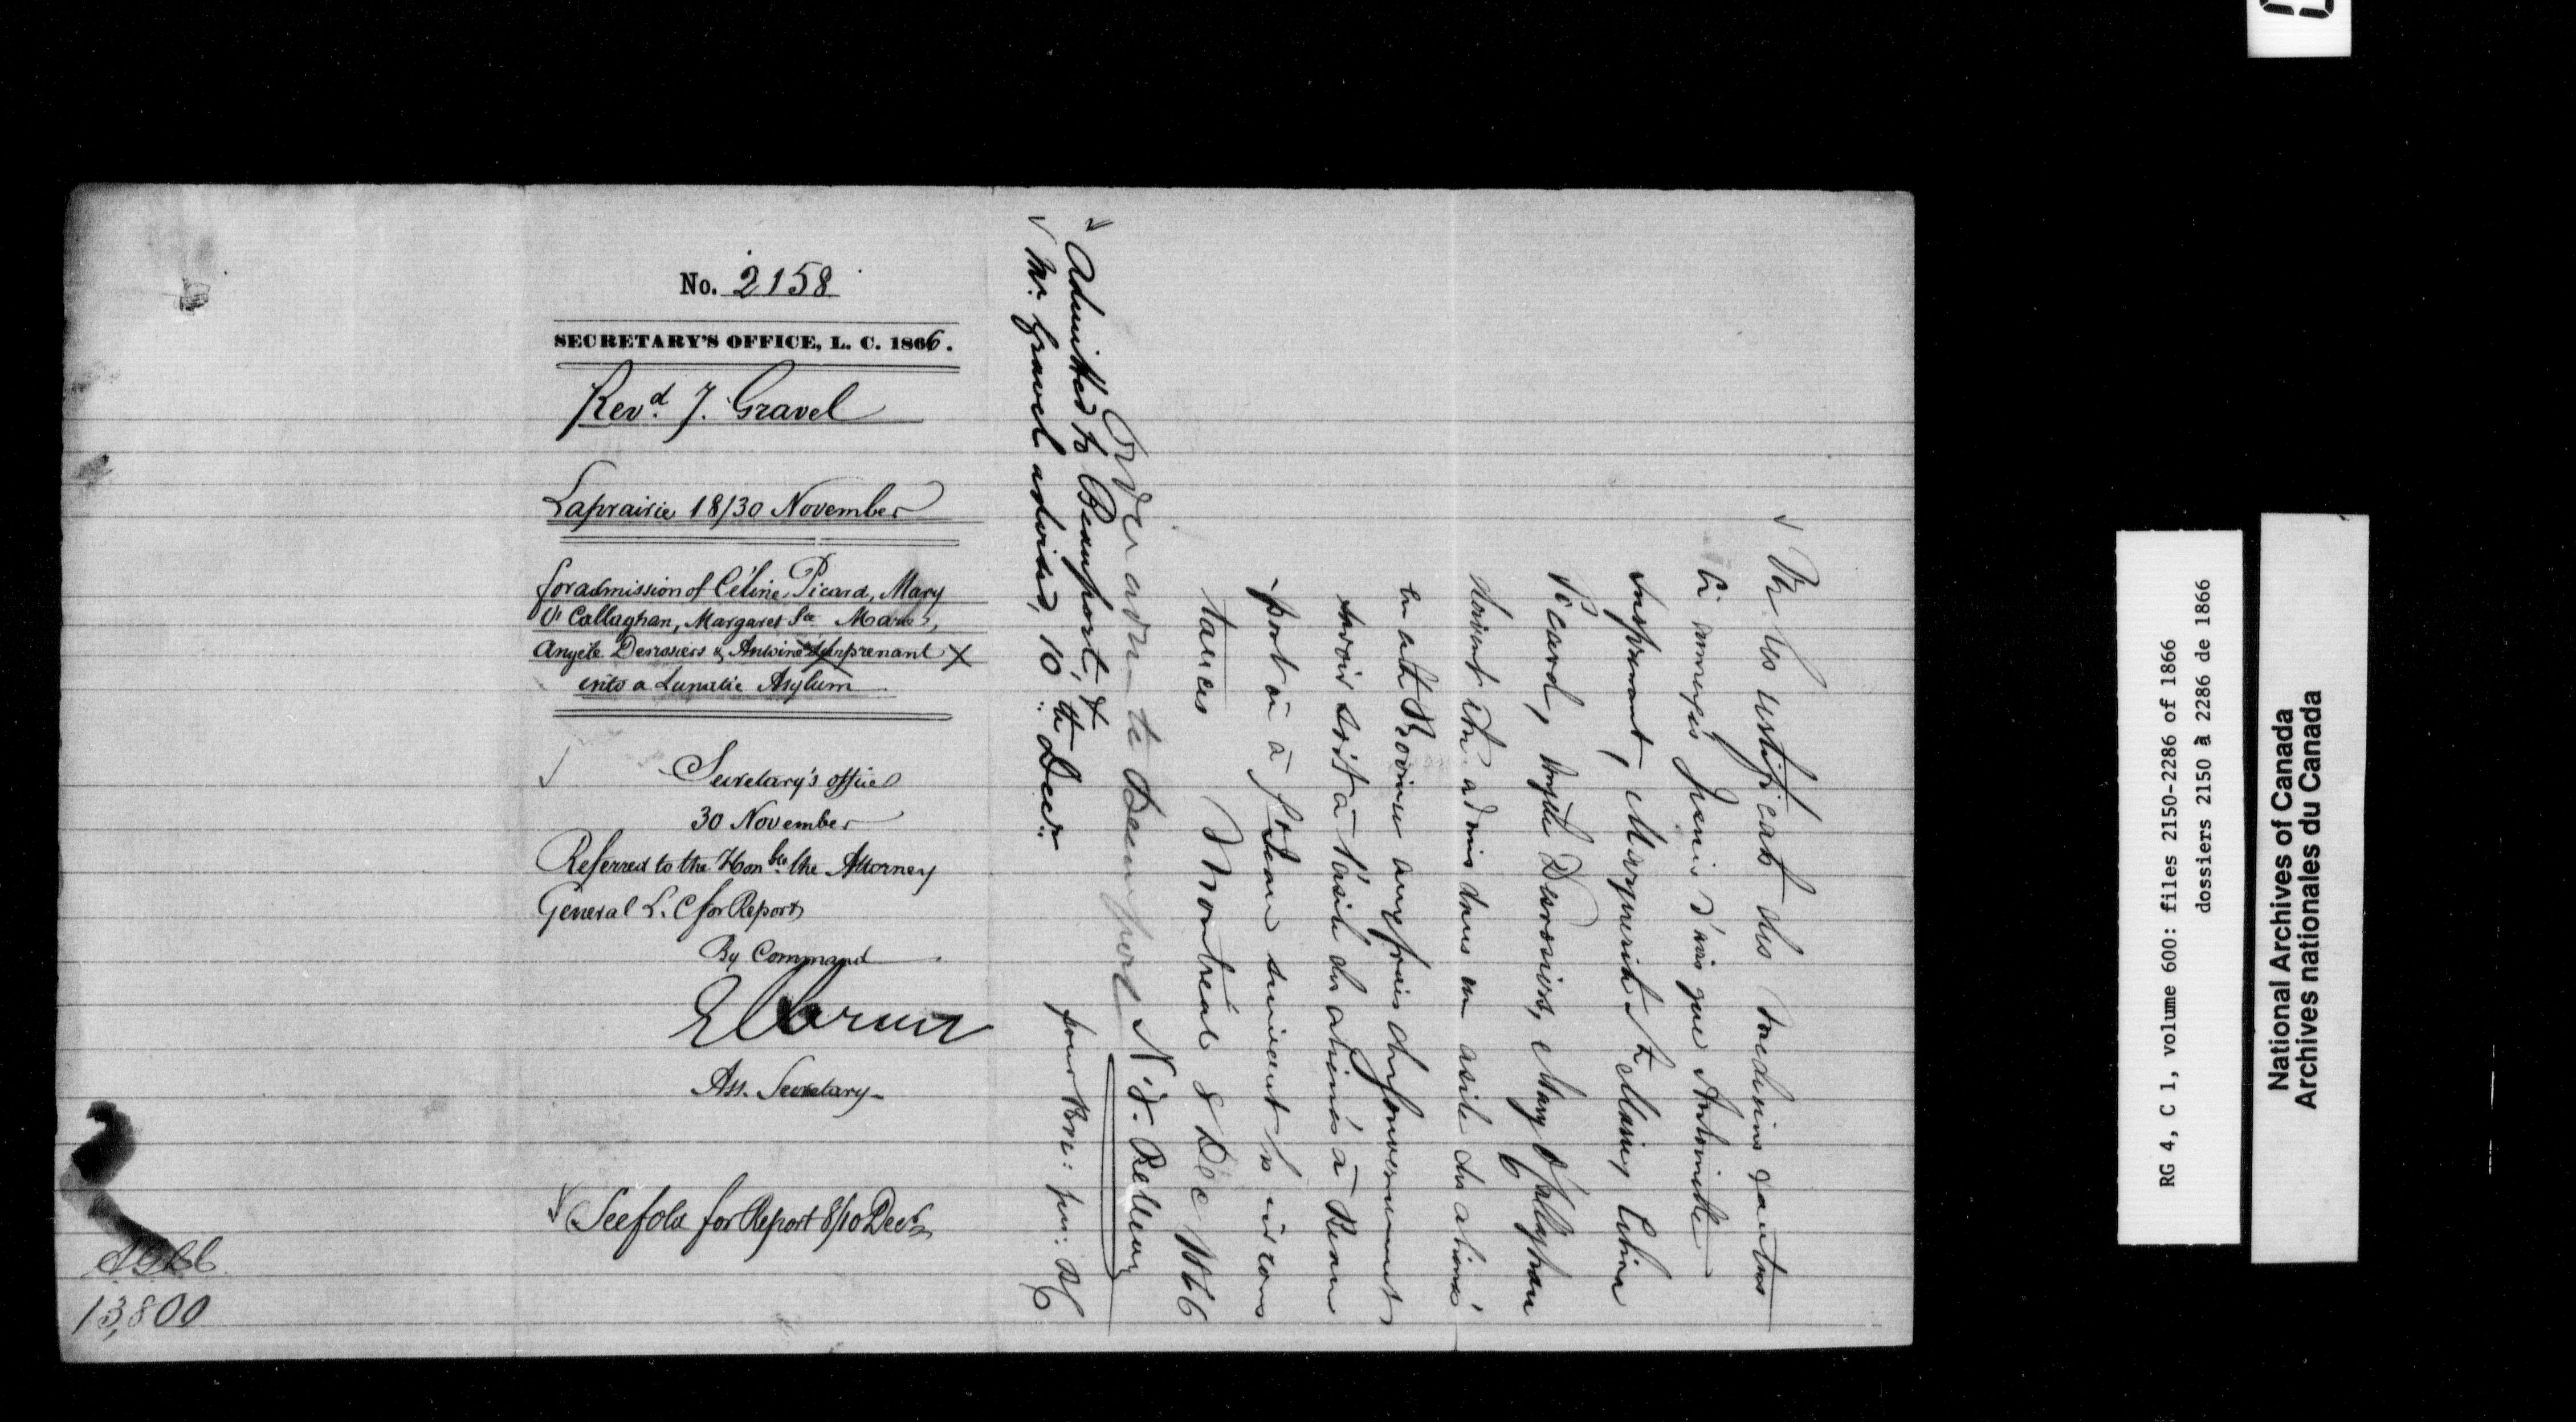 No. 2158
SECRETARY'S OFFICE, L. C. 1866.
Revd. J. Gravel
Laprairie 18/30 November
for admission of Céline Picard, Mary
O'Callaghan, Margaret Ste Marie,
Angèle Desrosiers & Antoine Surprenant X
into a Lunatic Asylum
Secretary's office
30 November
Referred to the Honble. the Attorney
General L. C for Report
By Command
Ass. Secretary
See fold for Report 8/10 Decr
13,800
Vu les certificats des médecins &autres
ci annexés je suis d'avis que Antoinette
Surprenant, Marguerite Ste Marie, Celina
Picard, Angèle Desrosiers, Mary O'Callaghan
doivent être admis dans un asile des aliénés
en cette Province aux frais du Gouvernement
savoir soit à l'asile des aliénés à Beau
port ou à St Jean suivant les circons
tances Montréal 8 Dec 1866
Order adm to Beauport
Admitted to Beauport, &
Mr. Gravel advised, 10th Decr.
RG 4, C 1, volume 600: files 2150-2286 of 1866
dossiers 2150 à 2286 de 1866
National Archives of Canada
Archives nationales du Canada